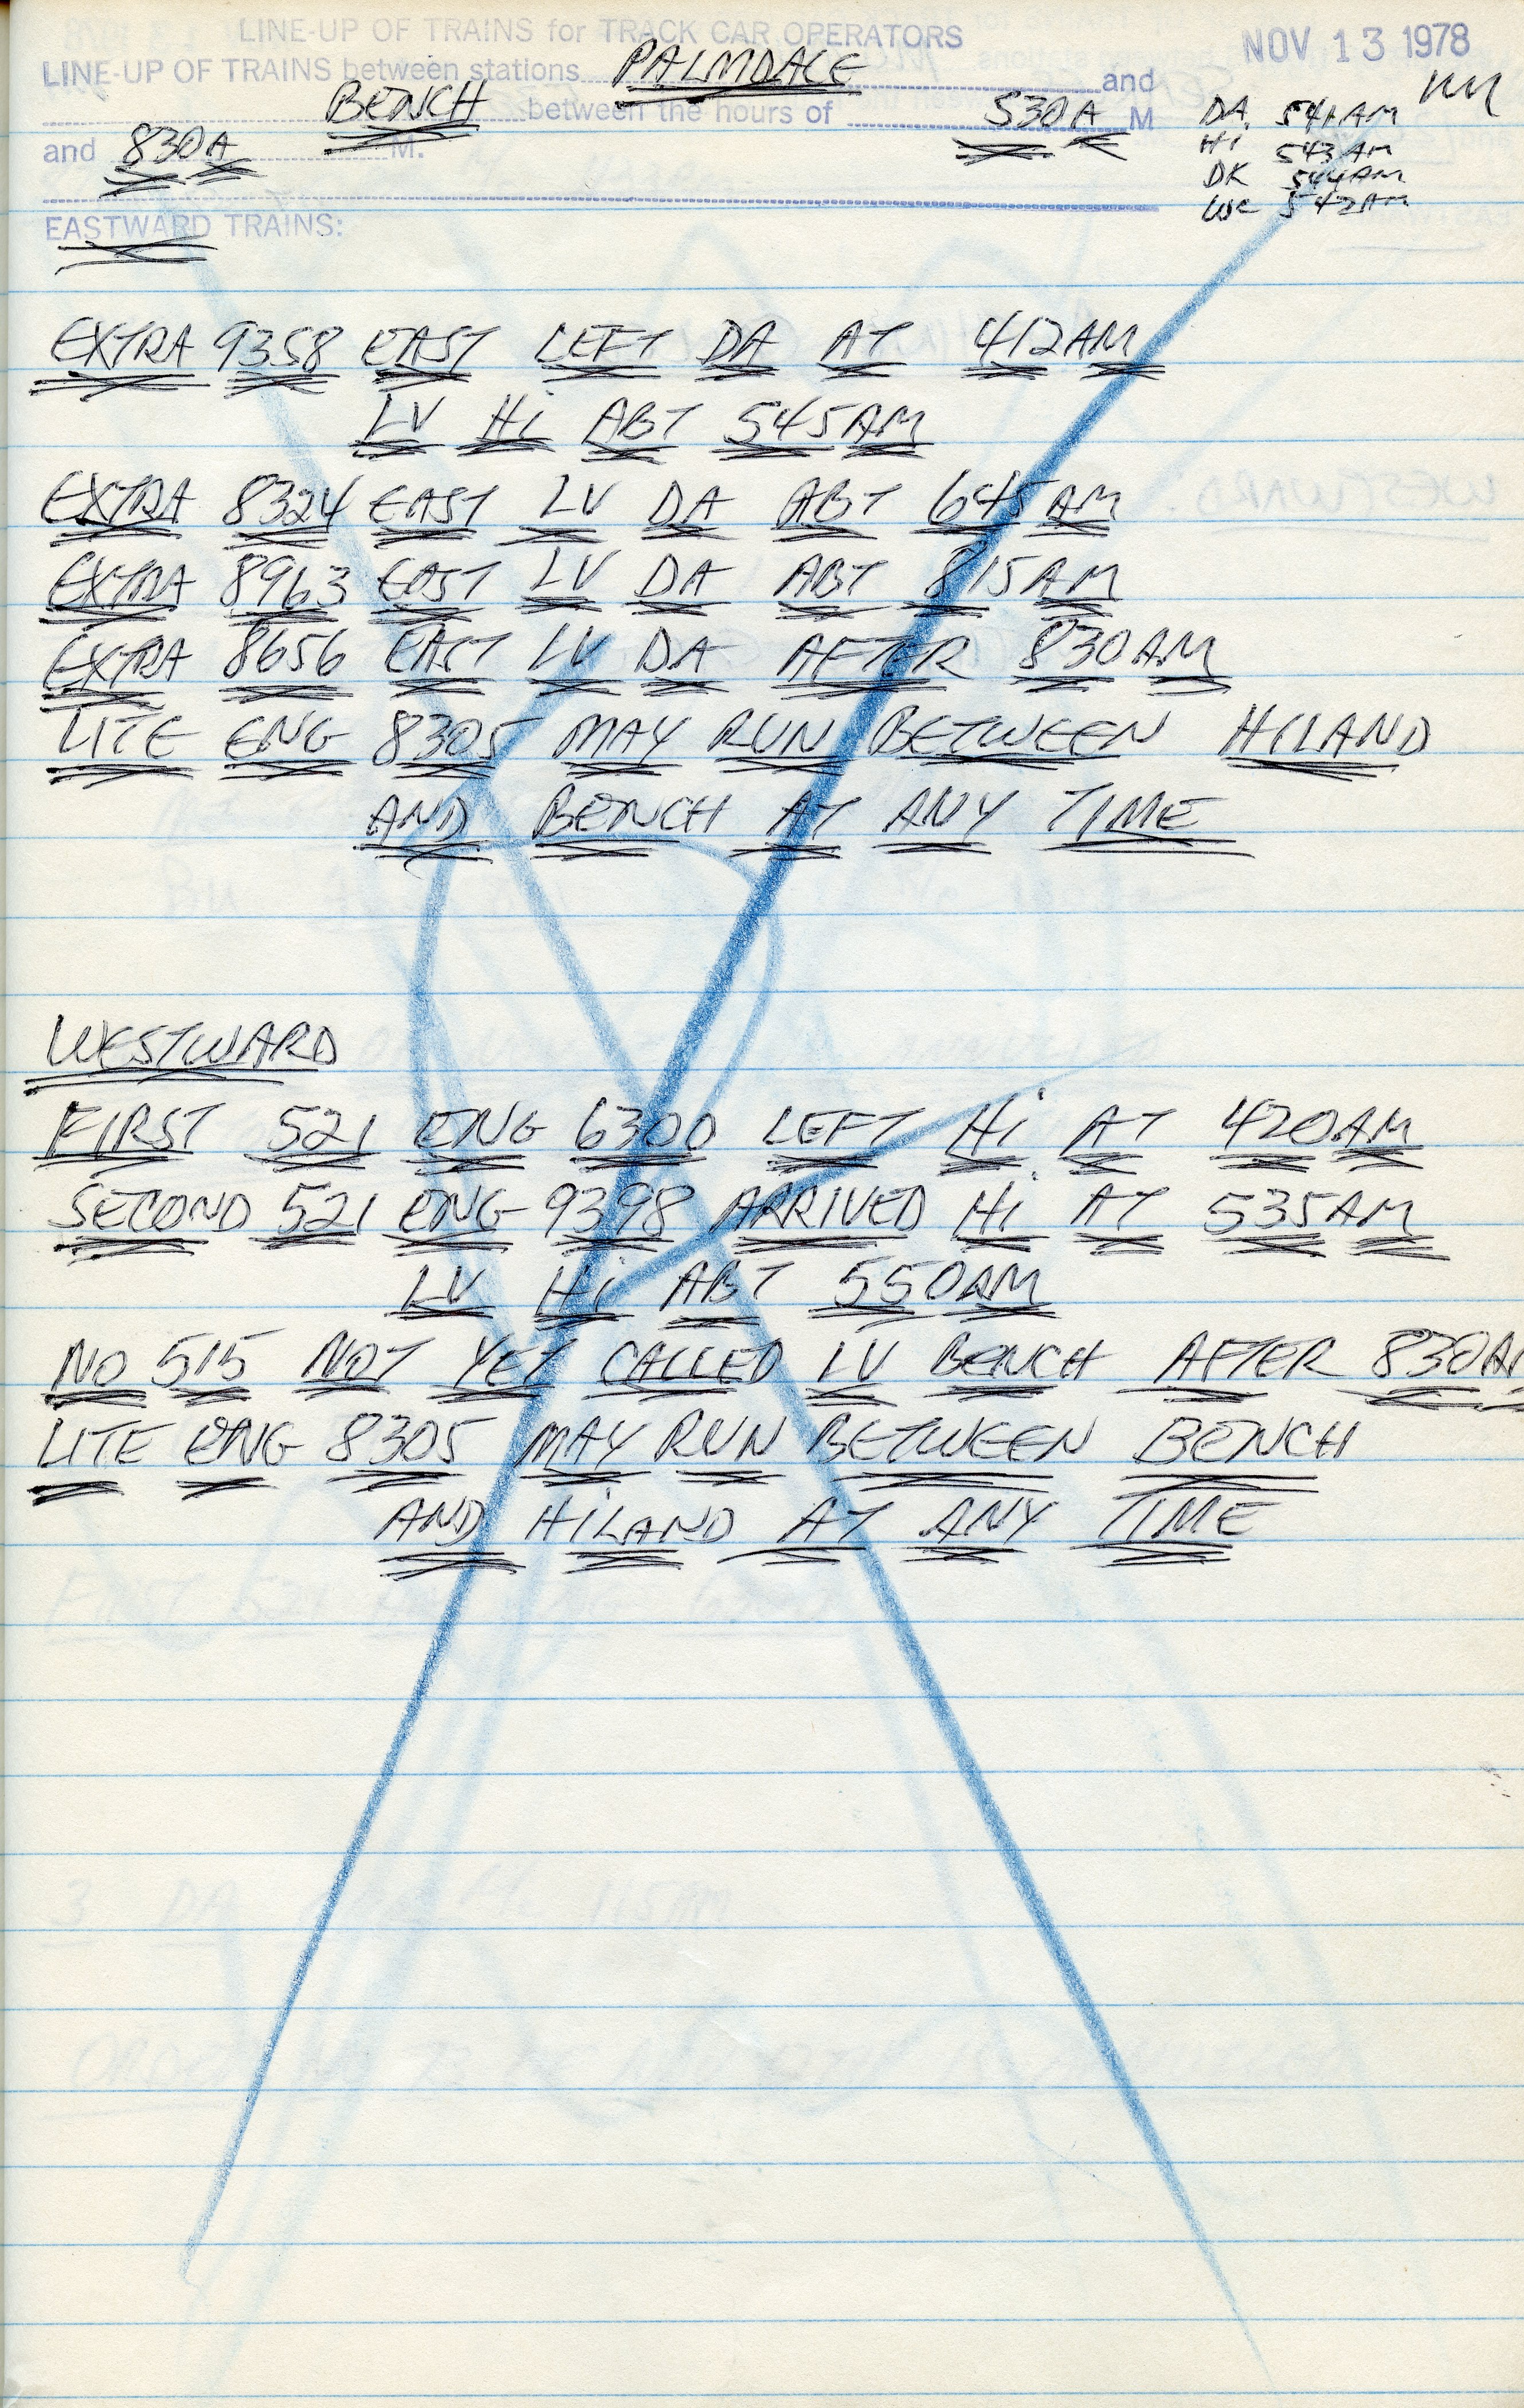 LINE-UP OF TRAINS for TRACK CAR OPERATORS
NOV 13 1978
LINE-UP OF TRAINS between stations PALMDALE and
BENCH between the hours of 530A M
and 830A M.
DA 541AM
Hi 543AM
DK 544AM
WC 542AM
EASTWARD TRAINS:
EXTRA 9358 EAST LEFT DA AT 412AM
LV Hi ABT 545AM
EXTRA 8324 EAST LV DA ABT 645AM
EXTRA 8963 EAST LV DA ABT 815AM
EXTRA 8656 EAST LV DA AFTER 830AM
LITE ENG 8305 MAY RUN BETWEEN HILAND
AND BENCH AT ANY TIME
WESTWARD
FIRST 521 ENG 6300 LEFT Hi AT 420AM
SECOND 521 ENG 9398 ARRIVED Hi AT 535AM
LV Hi ABT 550AM
NO 515 NOT YET CALLED LV BENCH AFTER 830AM
LITE ENG 8305 MAY RUN BETWEEN BENCH
AND HiLAND AT ANY TIME